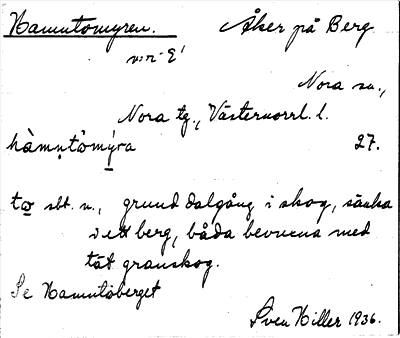 Hamntomyren. Åker på Berg
Nora sn.,
Nora tg., Västernorrl. l.
hàmṇtômýra 27.
to sbt. n., grund dalgång i skog, sänka
i ett berg, båda bevuxna med
tät granskog.
Se Hamntoberget
Sven Hiller 1936.